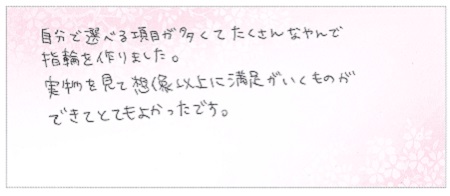 自分で選べる項目が多くてたくさんなやんで
指輪を作りました。
実物を見て想像以上に満足がいくものが
できてとてもよかったです。